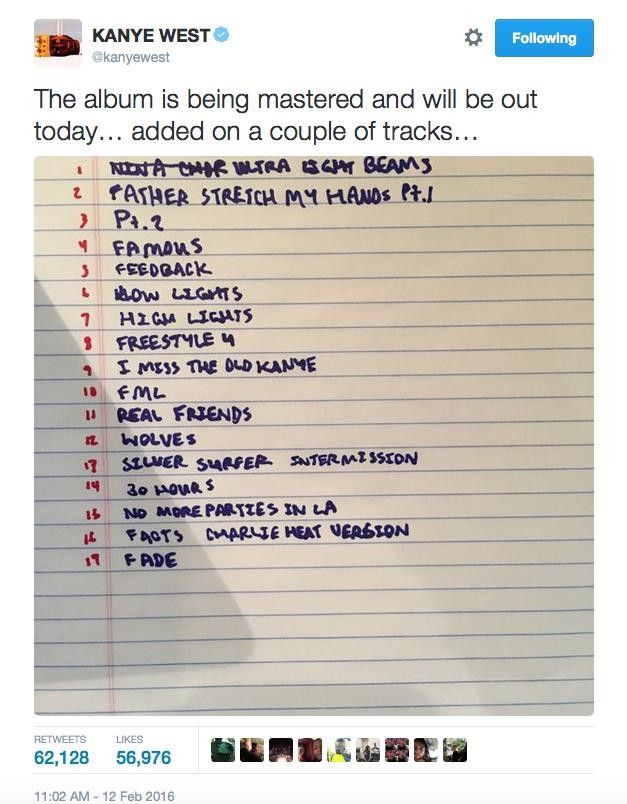 KANYE WEST
@kanyewest
Following
The album is being mastered and will be out
today... added on a couple of tracks...
1 ULTRA LIGHT BEAMS
2 FATHER STRETCH MY HANDS Pt.1
3 Pt.2
4 FAMOUS
5 FEEDBACK
6 LOW LIGHTS
7 HIGH LIGHTS
8 FREESTYLE 4
9 I MISS THE OLD KANYE
10 FML
11 REAL FRIENDS
12 WOLVES
13 SILVER SURFER INTERMISSION
14 30 HOURS
15 NO MORE PARTIES IN LA
16 FACTS CHARLIE HEAT VERSION
17 FADE
RETWEETS LIKES
62,128 56,976
11:02 AM - 12 Feb 2016